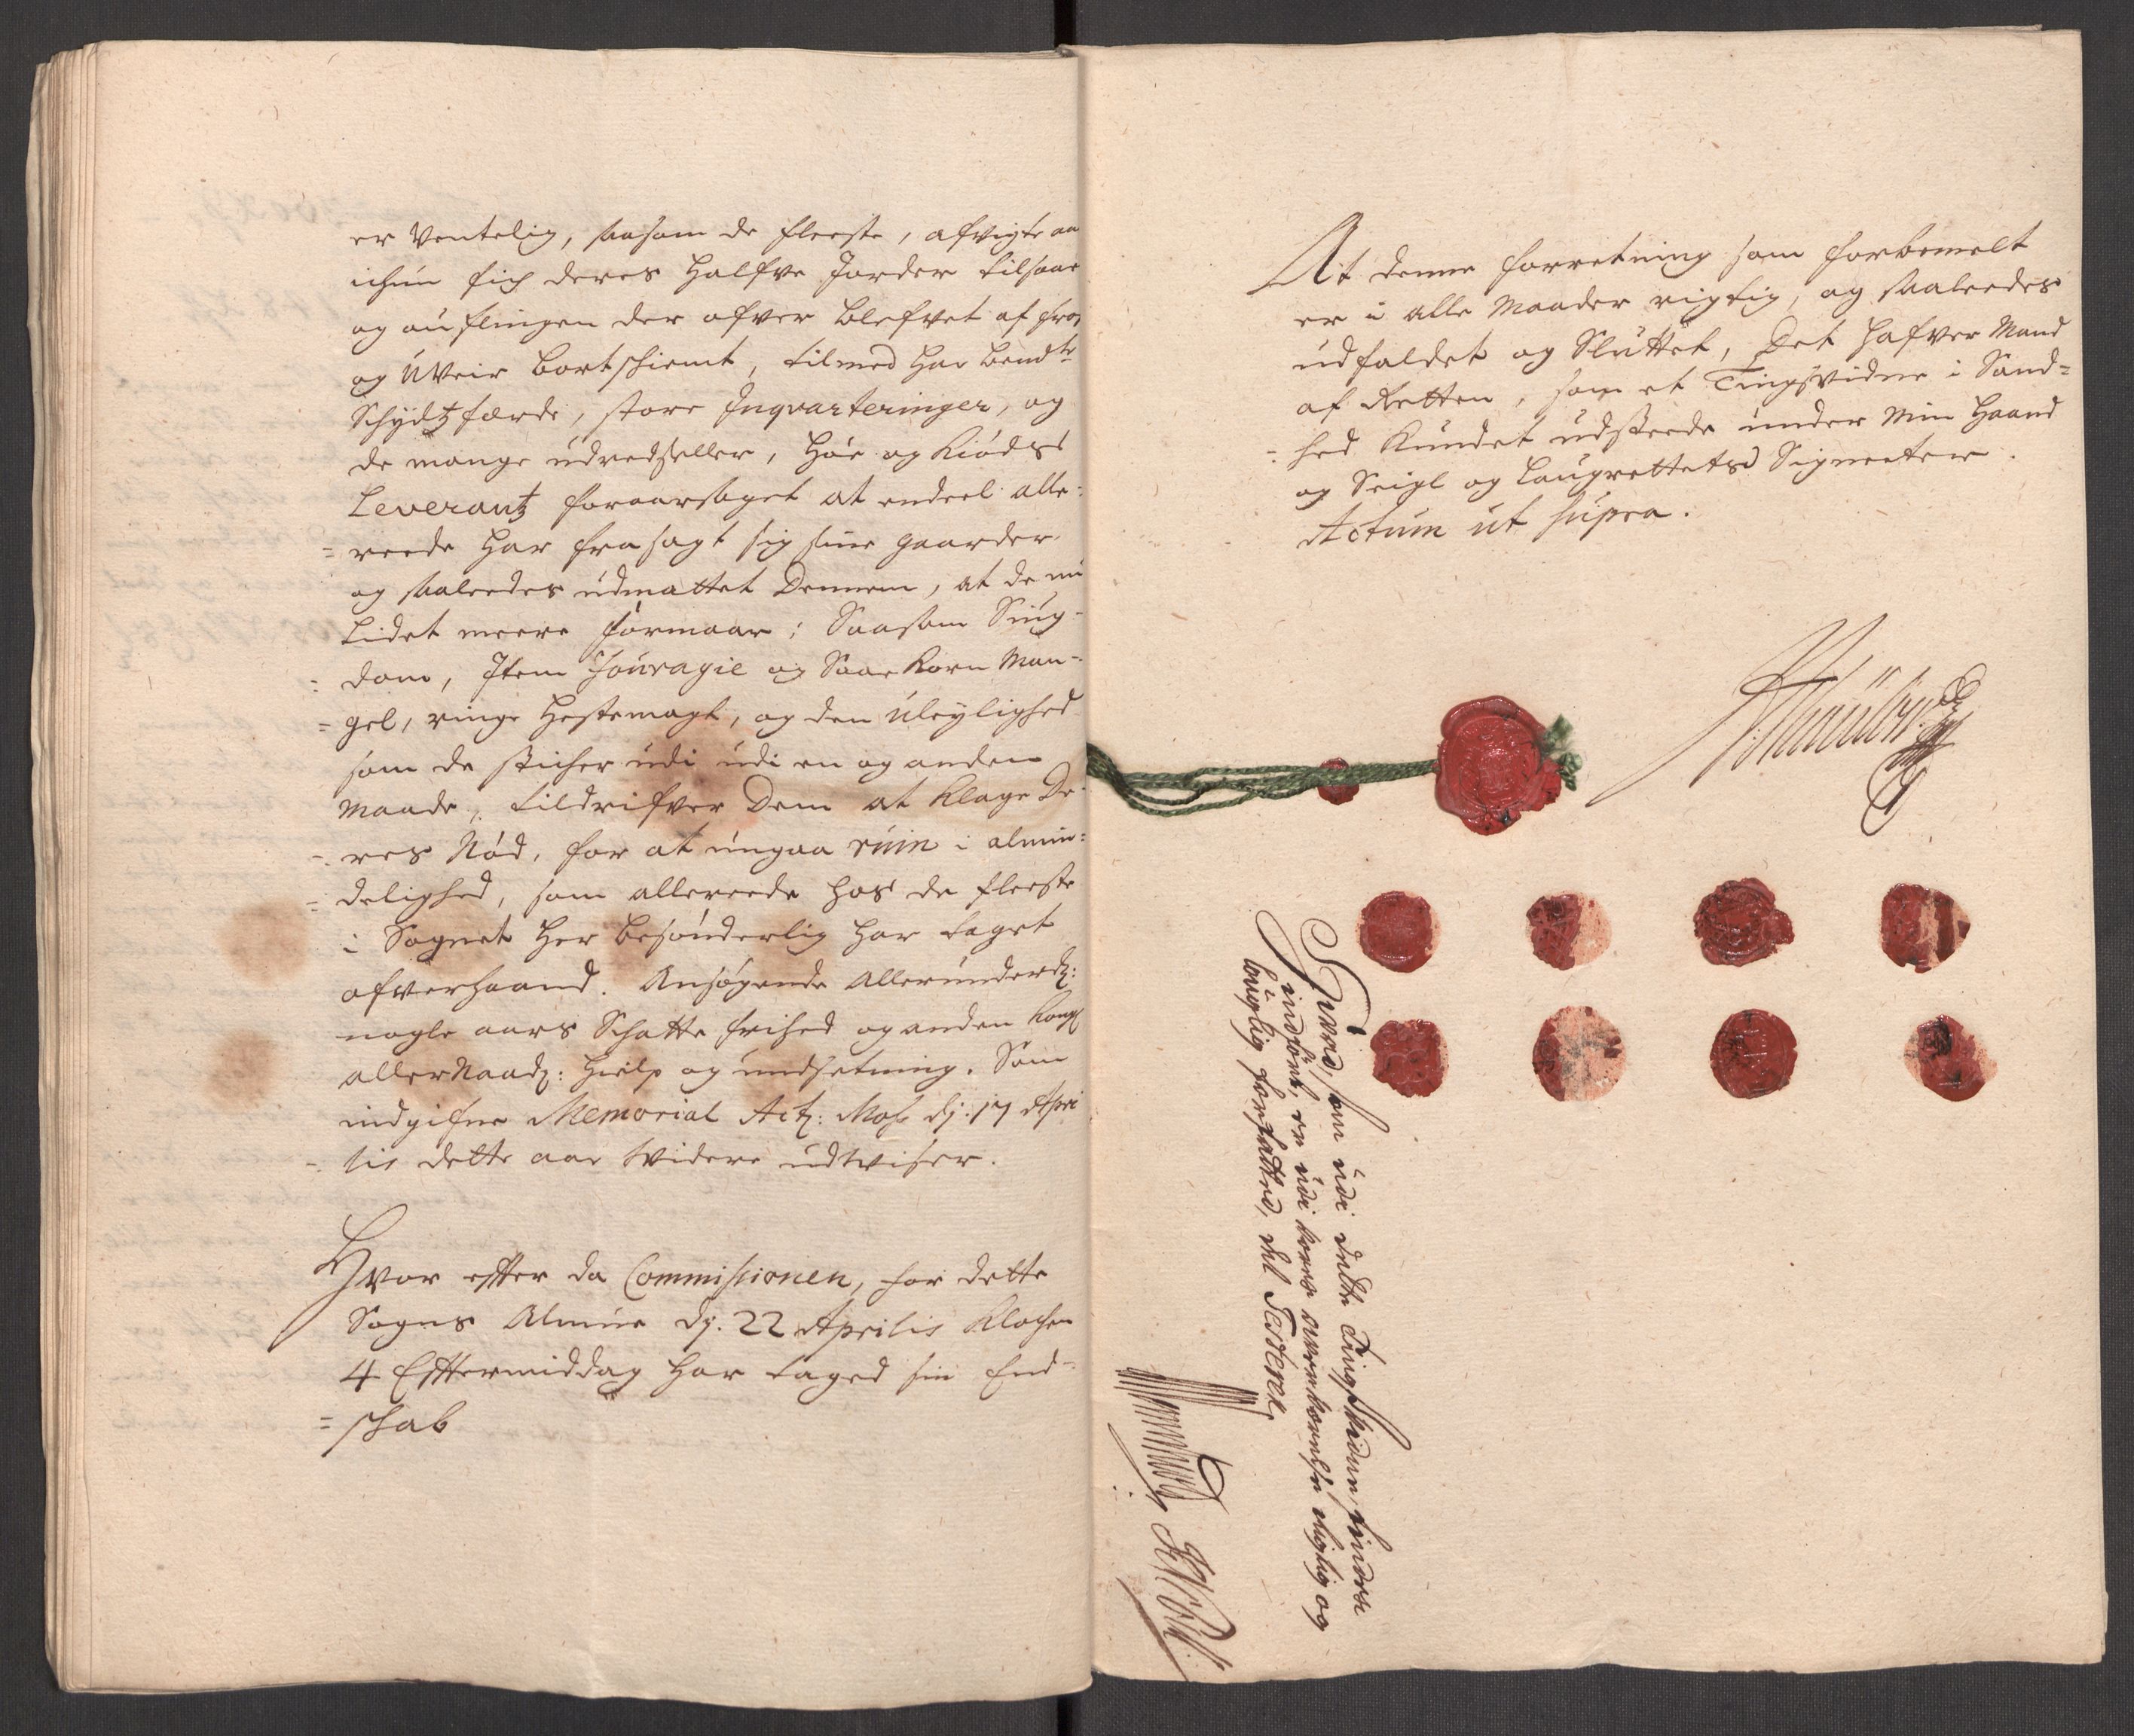 er Ventelig, saasom de fleeste, afvigte aa
ichun fich deres halfve Jorder tilsaae
og auflingen der ofver blefvet af fros
og Uveir bortschiemt, tilmed har bemdte
Schydtzfærde, store Inqvarteringer, og
de mange udredsseller, Höe og Kiöds
Leverantz foraarsaget at endeel alle-
= reede har frasagt sig sine gaarder
og saaledes udmattet Dennem, at de nu
Lidet meere formaar; Saasom Siug-
= dom, Item fouragie og Saae Korn Man-
= gel, ringe Hestemagt, og den Uleylighed
som de sticher udi udi en og anden
Maade, tildrifver Dem at klage De-
= res Nöd, for at ungaa ruin i almin-
= delighed, som allereede hos de fleeste
i Sognet her besönderlig har taget
ofverhaand. Ansögende Allerunderd:
nogle aars Schatte frihed og anden Kongl
allerNaad: Hielp og undsetning. Som
indgifne Memorial Act: Moss dj: 17 Apri
= lis dette aar Widere udviser.
Hvor efter da Commissionen, for dette
Sogns Almue dj. 22 Aprilis Klochen
4 Efftermiddag har taged sin End-
= schab
At denne forretning som forbemelt
er i alle Maader rigtig, og saaledes
udfaldet og Sluttet, Det hafver Mand
af Retten, som et Tingsvidne i Sand-
= hed kundet udsteede under Min Haand
og Seigl og Laugrettets Signeter.
Actum ut supra.
Hvad, som udi dette Tingsvidne findes
indfört, er udi vores overværelse rigtig og
lauglig forfatted, det Testerer